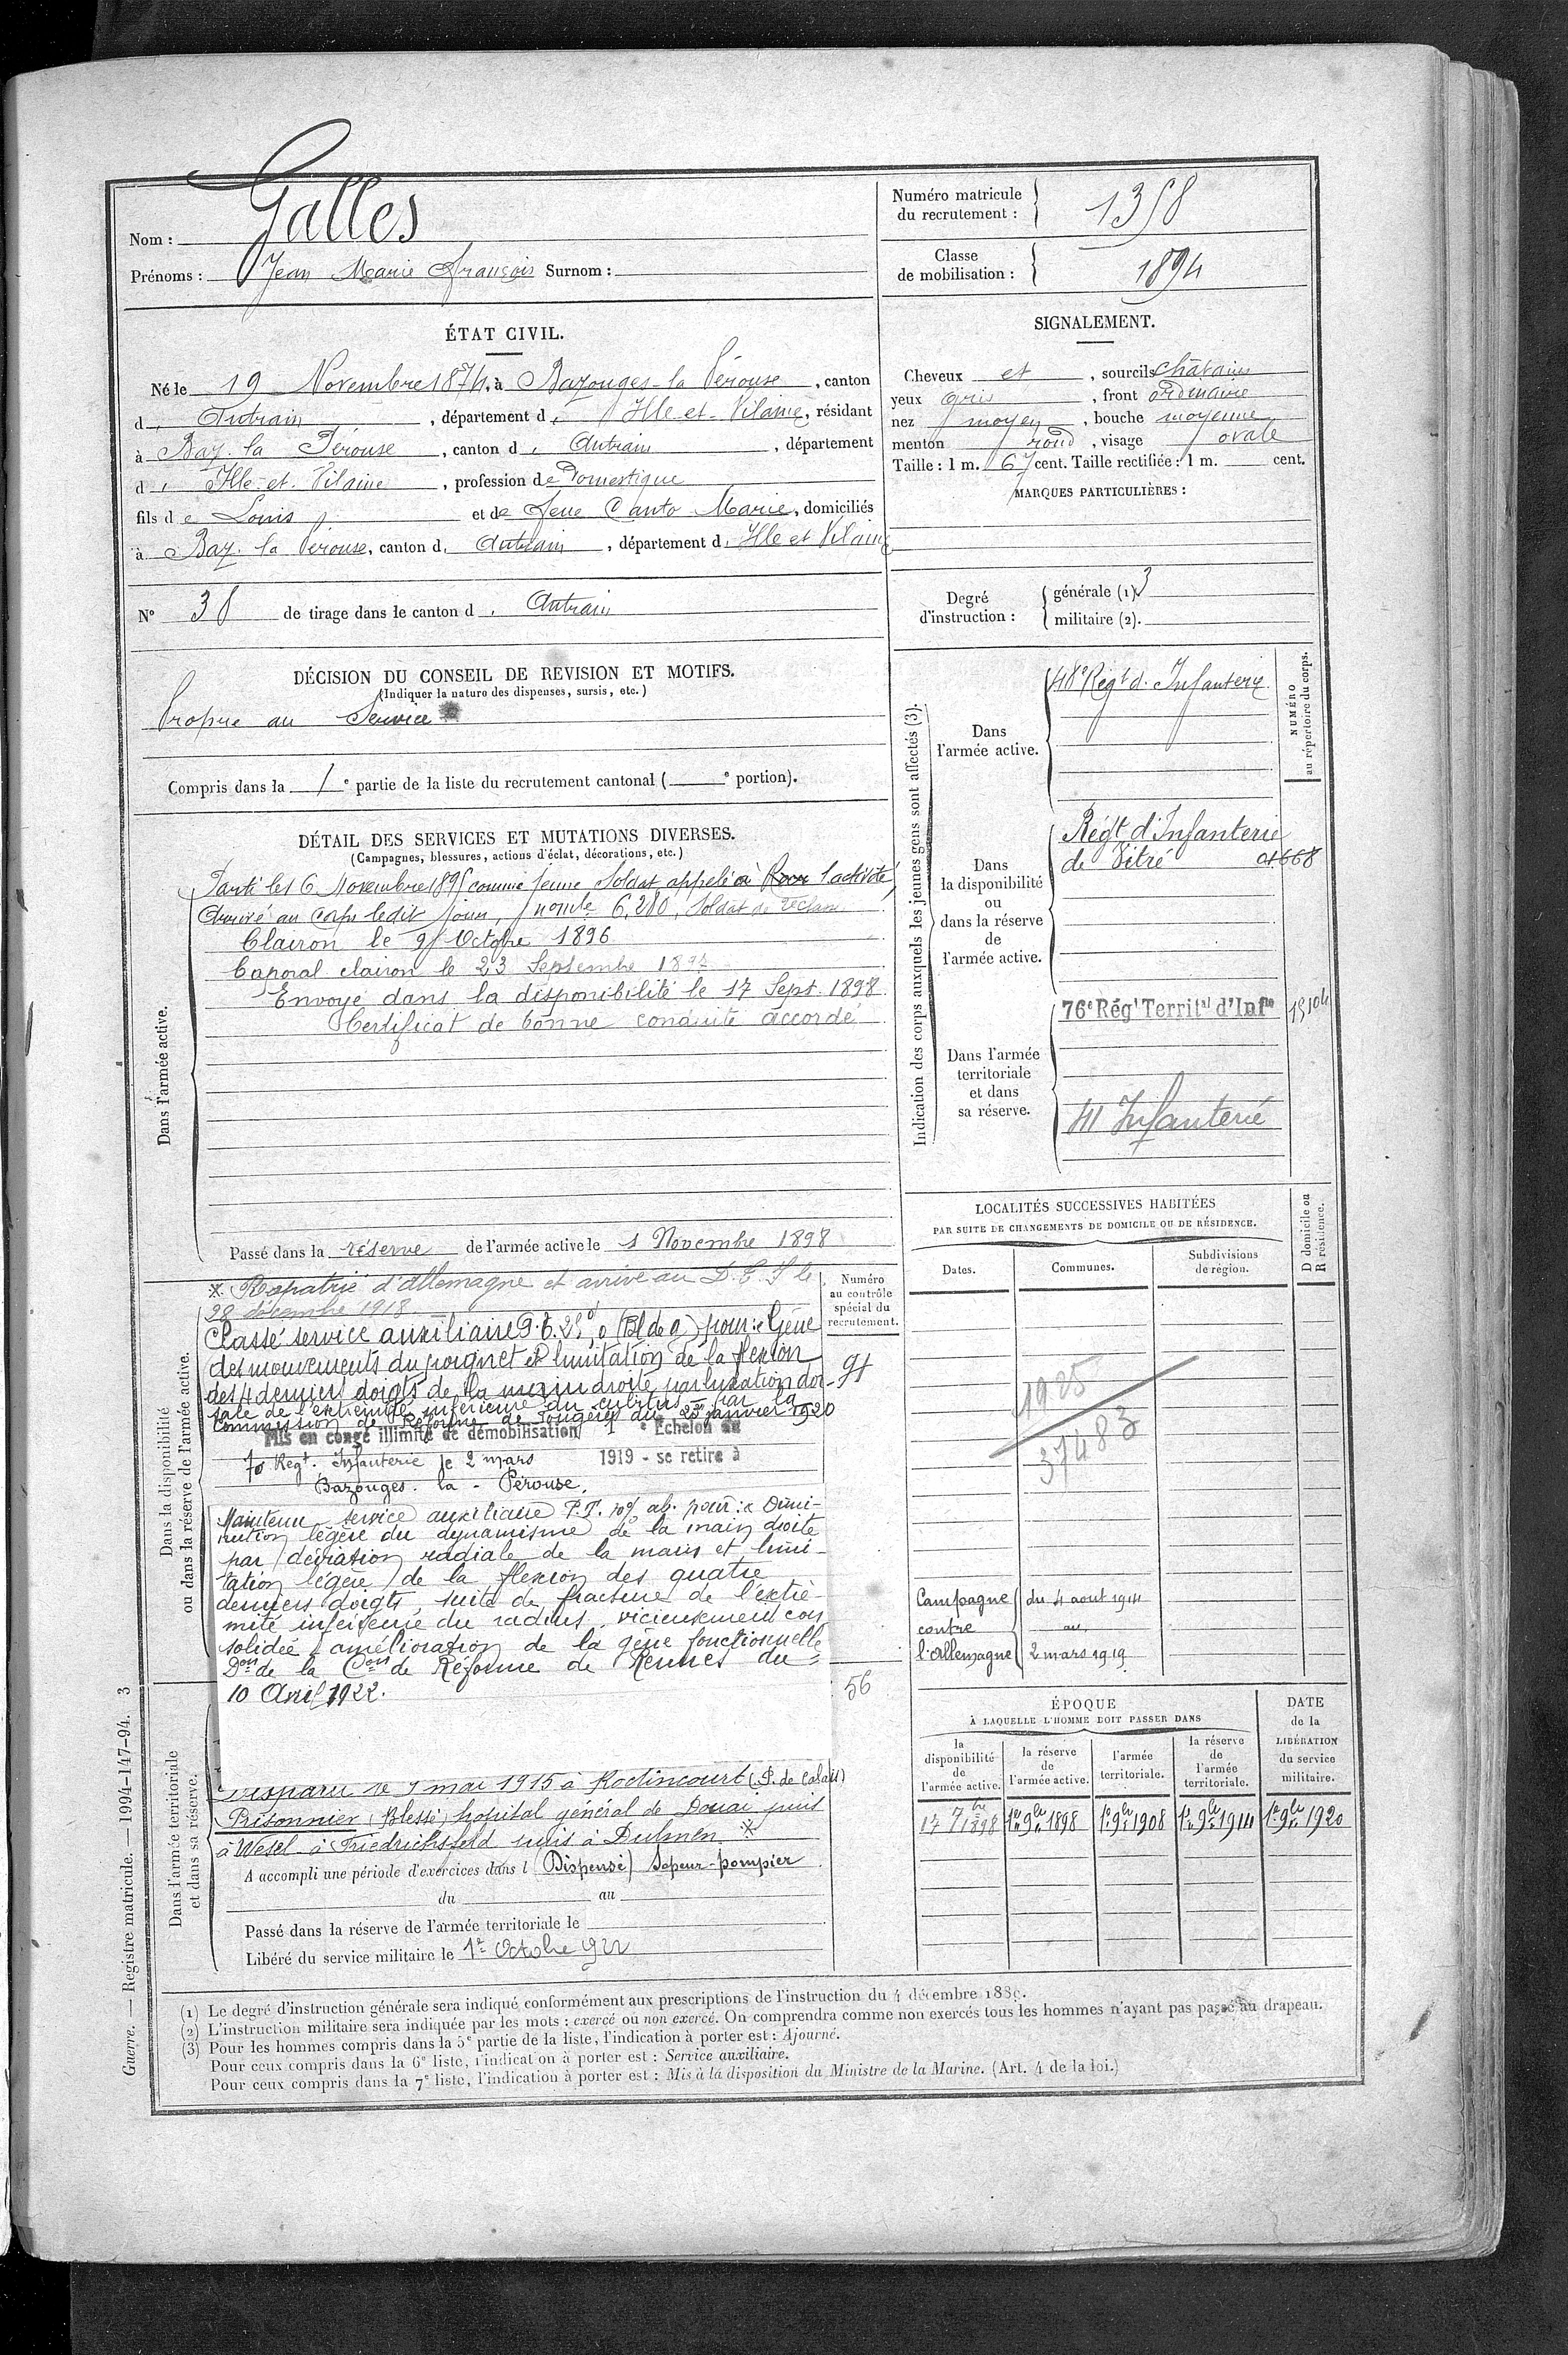 Nom : Galles
Prénoms : Jean Marie François Surnom :
Numéro matricule
du recrutement : 1358
Classe
de mobilisation : 1894
ÉTAT CIVIL.
Né le 19 Novembre 1874, à Bazouges-la Pérouse, canton
d Antrain, département d Ille-et-Vilaine, résidant
à Baz. la Pérouse, canton d Antrain, département
d Ille-et-Vilaine, profession de Domestique
fils de Louis et de feue Canto Marie, domiciliés
à Baz. la Pérouse, canton d Antrain, département d Ille et Vilaine
N° 38 de tirage dans le canton d Antrain
SIGNALEMENT.
Cheveux et, sourcils châtains
yeux gris, front ordinaire
nez moyen, bouche moyenne
menton rond, visage ovale
Taille : 1 m. 67 cent. Taille rectifiée : 1 m. cent.
MARQUES PARTICULIÈRES :
Degré
d'instruction :
générale (1) 3
militaire (2).
DÉCISION DU CONSEIL DE REVISION ET MOTIFS.
(Indiquer la nature des dispenses, sursis, etc.)
Propre au Service
Compris dans la 1e partie de la liste du recrutement cantonal ( e portion).
DÉTAIL DES SERVICES ET MUTATIONS DIVERSES.
(Campagnes, blessures, actions d'éclat, décorations, etc.)
Dans l'armée active.
Parti le 16 Novembre 1895 comme jeune Soldat appelé à l'activité
Arrivé au corps ledit jour, nomle 6,280, Soldat de 2e classe
Clairon le 9 Octobre 1896
Caporal clairon le 23 Septembre 1897
Envoyé dans la disponibilité le 17 Sept. 1898
Certificat de bonne conduite accordé
Passé dans la réserve de l'armée active le 1 Novembre 1898
Dans la disponibilité
ou dans la réserve de l'armée active.
Numéro
au contrôle
spécial du
recrutement.
* Rapatrié d'Allemagne et arrivé au D. C. I le
28 décembre 1918
Classé service auxiliaire (Bl de g) pour : Gêne
des mouvements du poignet et limitation de la flexion
des 4 derniers doigts de la main droite par luxation dor-
sale de l'extrémité inférieure du cubitus - par la
Commission de Réforme de Fougères du 23 janvier 1920
Mis en congé illimité de démobilisation 1e Echelon au
70 Regt. Infanterie le 2 mars 1919 - se retire à
Bazouges. la - Pérouse.
Maintenu service auxiliaire P.T. 10% ab. pour : Dimi-
nution légère du dynamisme de la main droite
par déviation radiale de la main et limi-
tation légère de la flexion des quatre
derniers doigts, suite de fracture de l'extré-
mité inférieure du radius, vicieusement con
solidée, amélioration de la gêne fonctionnelle
Don de la Con de Réforme de Rennes du
10 Avril 1922.
56
Dans l'armée territoriale
et dans sa réserve.
Disparu le 9 mai 1915 à Roclincourt (P. de Calais)
Prisonnier, (Blessé) hôpital général de Douai puis
à Wesel - à Friedrichsfeld puis à Dulmen *
A accompli une période d'exercices dans l (Dispensé) Sapeur-pompier
du au
Passé dans la réserve de l'armée territoriale le
Libéré du service militaire le 1er Octobre 1922
Indication des corps auxquels les jeunes gens sont affectés (3).
NUMÉRO
au répertoire du corps.
Dans
l'armée active.
48e Régt d'Infanterie
Dans
la disponibilité
ou
dans la réserve
de
l'armée active.
Régt d'Infanterie
de Vitré
Dans l'armée
territoriale
et dans
sa réserve.
76e Régt Territal d'Infie
41 Infanterie
LOCALITÉS SUCCESSIVES HABITÉES
PAR SUITE DE CHANGEMENTS DE DOMICILE OU DE RÉSIDENCE.
Dates.
Communes.
Subdivisions
de région.
D domicile ou
R résidence.
1925
37483
Campagne du 4 aout 1914
contre au
l'Allemagne 2 mars 1919
ÉPOQUE
À LAQUELLE L'HOMME DOIT PASSER DANS
la
disponibilité
de
l'armée active.
la réserve
de
l'armée active.
l'armée
territoriale.
la réserve
de
l'armée
territoriale.
DATE
de la
LIBÉRATION
du service
militaire.
17 7bre 1898
1er 9bre 1898
1er 9bre 1908
1er 9bre 1914
1er 9bre 1920
(1) Le degré d'instruction générale sera indiqué conformément aux prescriptions de l'instruction du 4 décembre 1889.
(2) L'instruction militaire sera indiquée par les mots : exercé ou non exercé. On comprendra comme non exercés tous les hommes n'ayant pas passé au drapeau.
(3) Pour les hommes compris dans la 5e partie de la liste, l'indication à porter est : Ajourné.
Pour ceux compris dans la 6e liste, l'indication à porter est : Service auxiliaire.
Pour ceux compris dans la 7e liste, l'indication à porter est : Mis à la disposition du Ministre de la Marine. (Art. 4 de la loi.)
Guerre. — Registre matricule. — 1994-147-94. 3